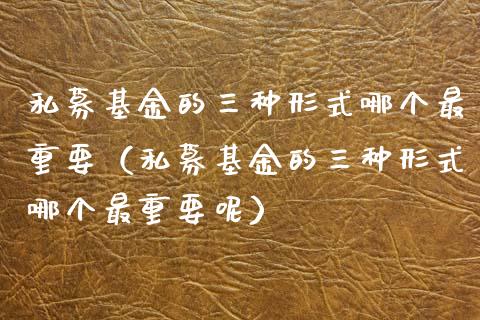 私募基金的三种形式哪个最
重要（私募基金的三种形式
哪个最重要呢）